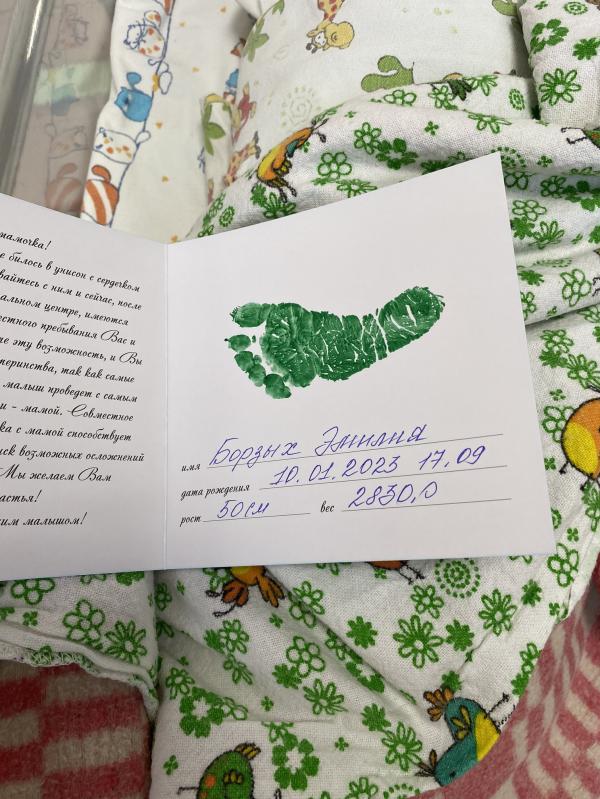 мамочка!
е билось в унисон с сердечком
вайтесь с ним и сейчас, после
альном центре, имеются
естного пребывания Вас и
те эту возможность, и Вы
теринства, так как самые
малыш проведет с самым
и - мамой. Совместное
ка с мамой способствует
иск возможных осложнений
Мы желаем Вам
астья!
ким малышом!
имя Борзых Эмилия
дата рождения 10.01.2023 17.09
рост 50см вес 2830,0